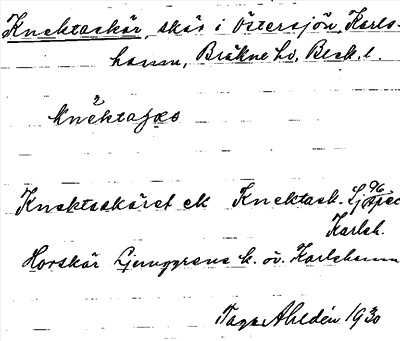 Knektaskär, skär i Östersjön, Karls-
hamn, Bräkne hd, Blek. l.
Knektaskäret ek Knektask. Lj 96
Karlsh.
Horskär Ljunggrens k. öv. Karlshamn
Tage Ahldén 1930